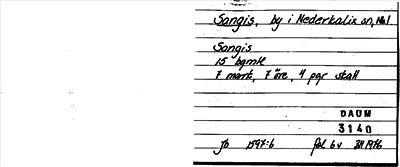 Sangis, by i Nederkalix sn, Nbl
Sangis
15 bgmtl
7 mant, 7 öre, 4 pgr skatt
DAUM
3140
Jb 1597:6 fol 6v 3/11 1976